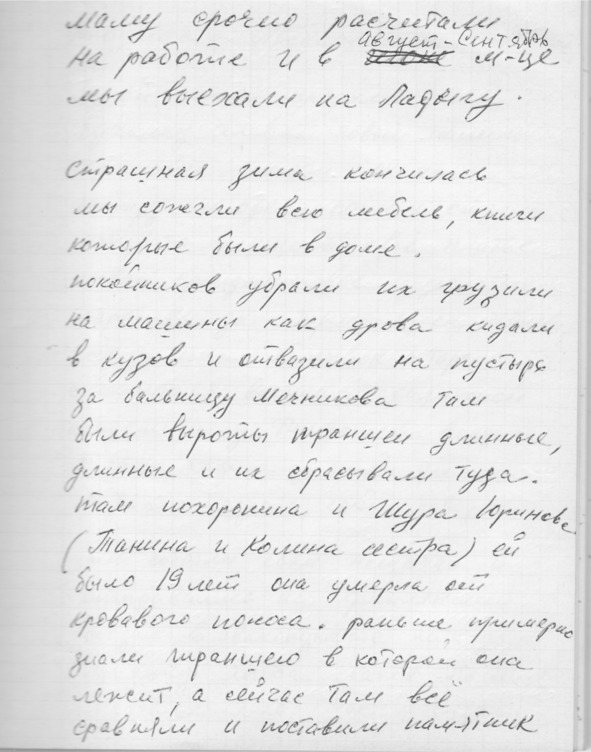 маму срочно расчитали
на работе и в август-сентябь м-це
мы выехали на Ладогу.
страшная зима кончилась
мы сожгли всю мебель, книги
которые были в доме.
покойников убрали их грузили
на машины как дрова кидали
в кузов и отвазили на пустырь
за бальницу Мечникова там
были вырыты траншеи длинные,
длинные и их сбрасывали туда.
там похоренина и Шура Юринова
(Танина и Колина сестра) ей
было 19 лет она умерла от
кровавого поноса. раньше примерно
знали траншею в которой она
лежит, а сейчас там всё
сравняли и поставили памятник